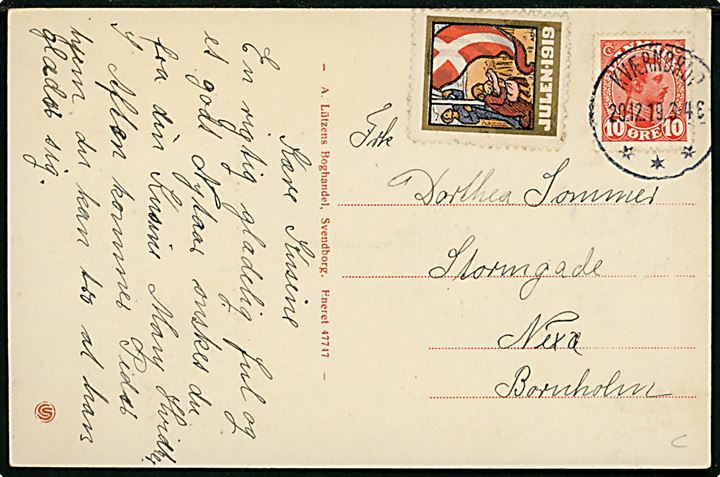 Kære Kusine
En rigtig glædelig Jul og
et godt Nytaar ønskes du
fra din Kusine Mary
I Aften kommer
hjem du kan tro at han
glæder sig.
– A. Lützens Boghandel, Svendborg. Eneret 47747 –
JULEN·1919
KVÆRNDRUP
29.12.19
DANMARK
10 ØRE 10
Frk
Dorthea Sommer
Stormgade
Nexø
Bornholm